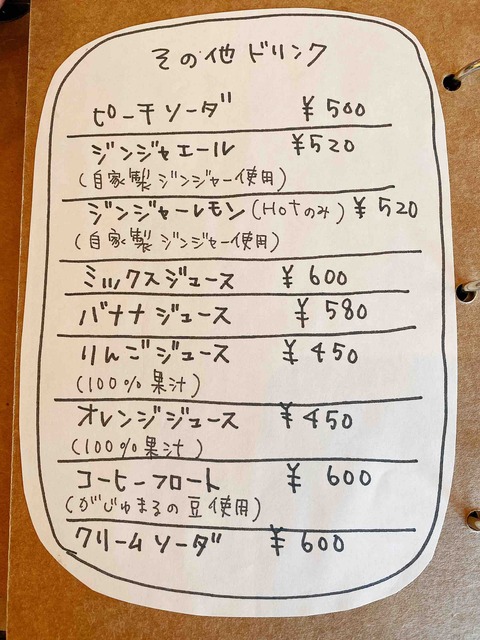 その他ドリンク
ピーチソーダ ¥500
ジンジャエール ¥520
(自家製ジンジャー使用)
ジンジャーレモン(Hotのみ) ¥520
(自家製ジンジャー使用)
ミックスジュース ¥600
バナナジュース ¥580
りんごジュース ¥450
(100%果汁)
オレンジジュース ¥450
(100%果汁)
コーヒーフロート ¥600
(がじゅまるの豆使用)
クリームソーダ ¥600